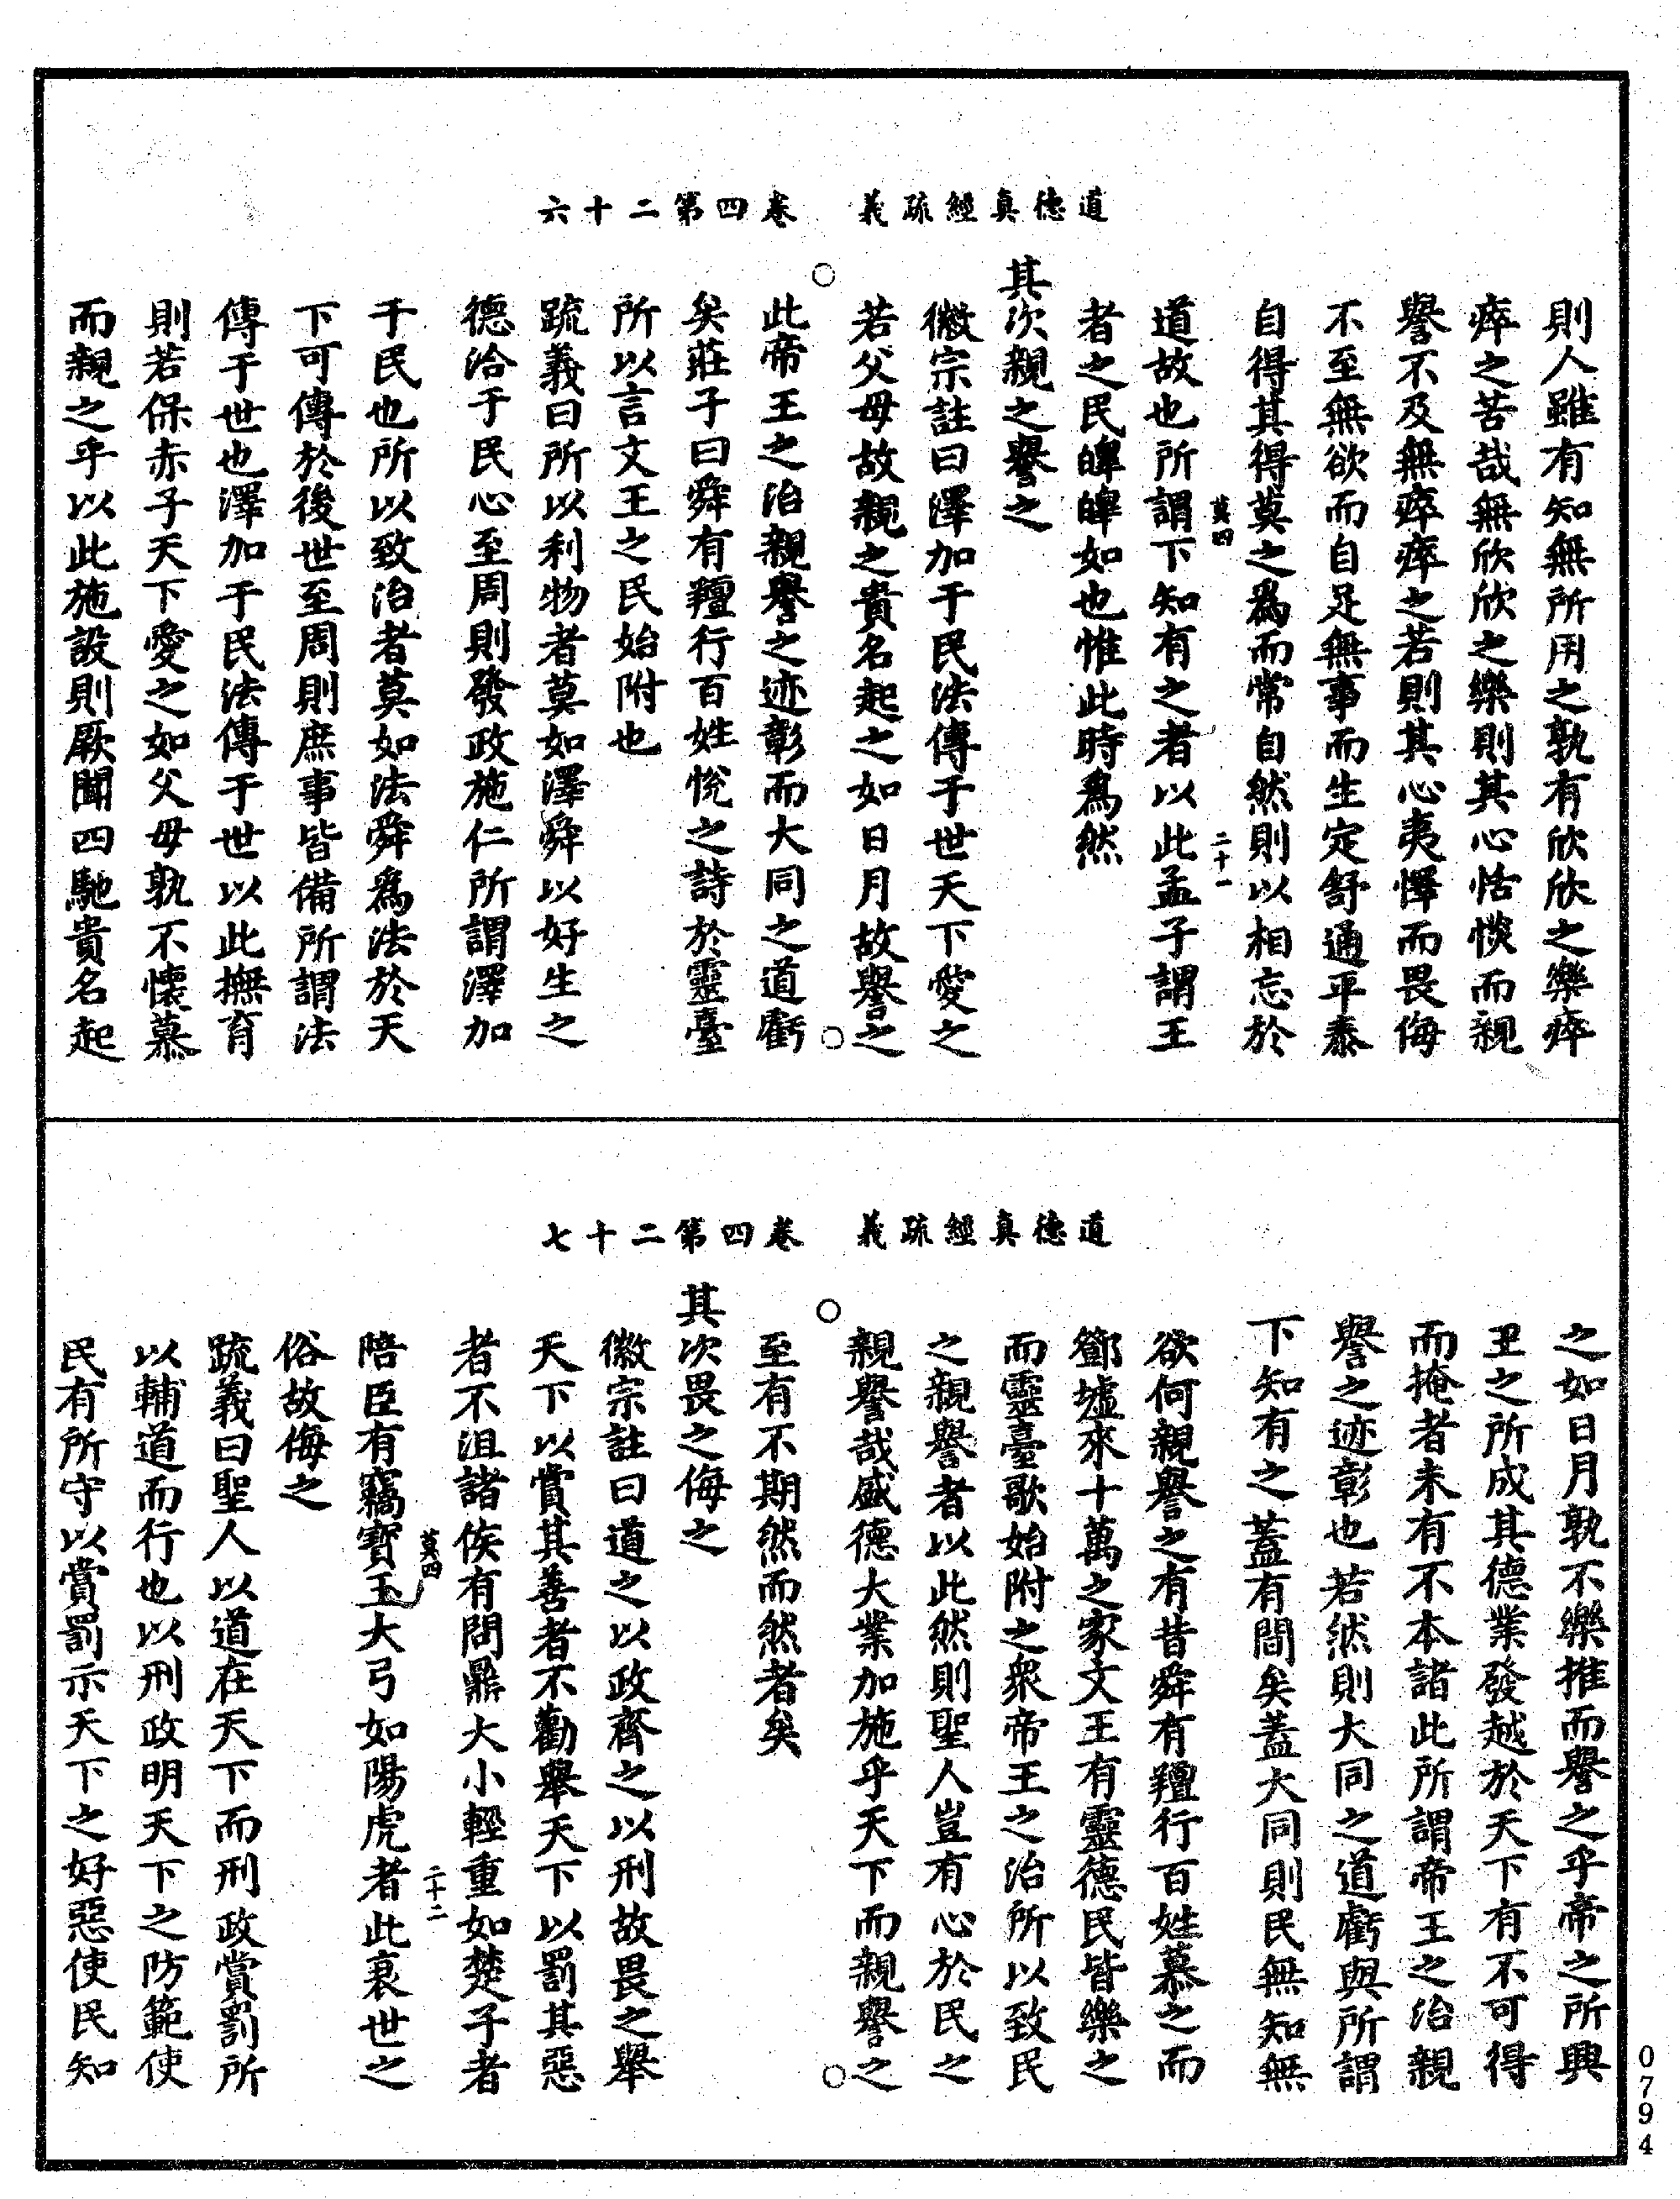 道德真經疏義　卷四第二十六
則人雖有知無所用之孰有欣欣之樂瘁
瘁之苦哉無欣欣之樂則其心恬惔而親
譽不及無瘁瘁之苦則其心夷懌而畏侮
不至無欲而自足無事而生定舒通平泰
自得其得莫之爲而常自然則以相忘於
莫四　二十一
道故也所謂下知有之者以此孟子謂王
者之民皞皞如也惟此時爲然
其次親之譽之
徽宗註曰澤加于民法傳于世天下愛之
若父母故親之貴名起之如日月故譽之
此帝王之治親譽之迹彰而大同之道虧
矣莊子曰舜有羶行百姓悅之詩於靈臺
所以言文王之民始附也
疏義曰所以利物者莫如澤舜以好生之
德洽于民心至周則發政施仁所謂澤加
于民也所以致治者莫如法舜爲法於天
下可傳於後世至周則庶事皆備所謂法
傳于世也澤加于民法傳于世以此撫育
則若保赤子天下愛之如父母孰不懷慕
而親之乎以此施設則厥聞四馳貴名起
道德真經疏義　卷四第二十七
之如日月孰不樂推而譽之乎帝之所興
丑之所成其德業發越於天下有不可得
而掩者未有不本諸此所謂帝王之治親
譽之迹彰也若然則大同之道虧與所謂
下知有之蓋有間矣蓋大同則民無知無
欲何親譽之有昔舜有羶行百姓慕之而
鄧墟來十萬之家文王有靈德民皆樂之
而靈臺歌始附之衆帝王之治所以致民
之親譽者以此然則聖人豈有心於民之
親譽哉盛德大業加施乎天下而親譽之
至有不期然而然者矣
其次畏之侮之
徽宗註曰道之以政齊之以刑故畏之舉
天下以賞其善者不勸舉天下以罰其惡
者不沮諸侯有問鼎大小輕重如楚子者
莫四　二十二
陪臣有竊寶玉大弓如陽虎者此衰世之
俗故侮之
疏義曰聖人以道在天下而刑政賞罰所
以輔道而行也以刑政明天下之防範使
民有所守以賞罰示天下之好惡使民知
0794